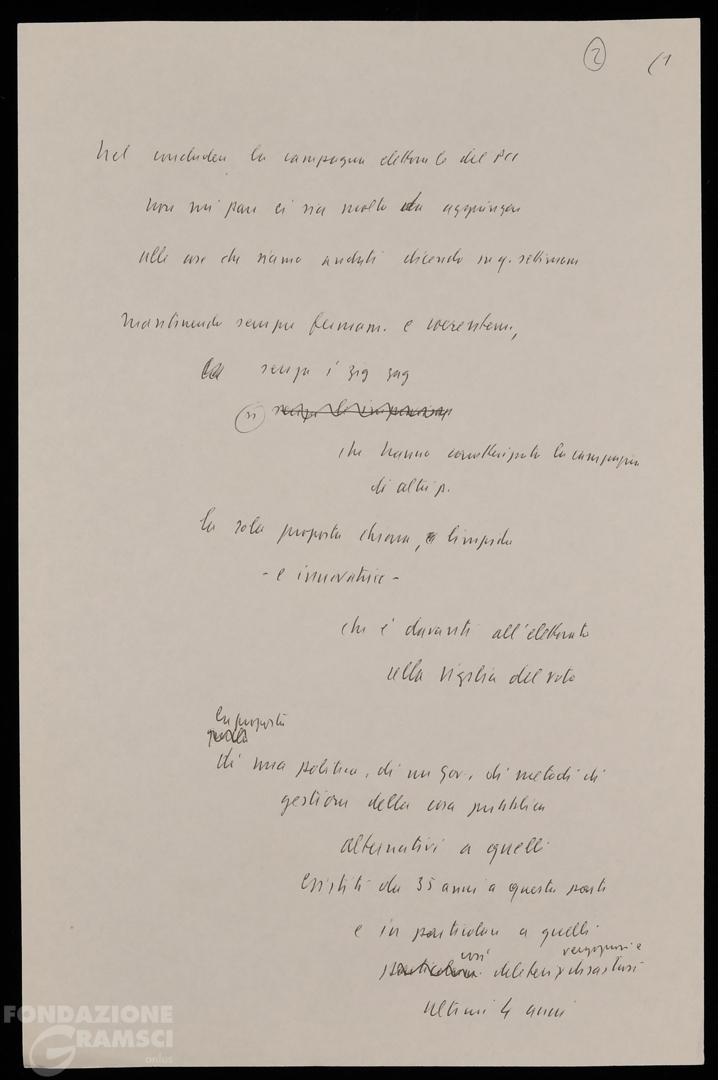 2 (1
Nel concludere la campagna elettorale del PCI
non mi pare ci sia molto da aggiungere
alle cose che siamo andati dicendo in q. settimane
Mantenendo sempre fermam. e coerentem.,
senza i zig zag
che hanno caratterizzato la campagna
di altri p.
la sola proposta chiara, e limpida
- e innovatrice -
che è davanti all'elettorato
alla vigilia del voto
la proposta
di una politica, di un gov., di metodi di
gestione della cosa pubblica
alternativi a quelli
esistiti da 35 anni a questa parte
e in particolare a quelli
così vergognosi e
deleteri disastrosi
ultimi 4 anni
FONDAZIONE
GRAMSCI
onlus